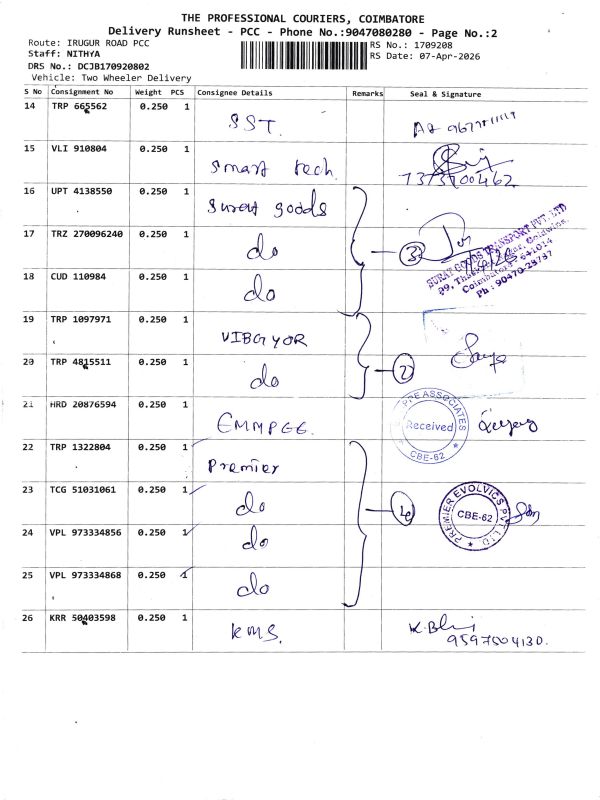 THE PROFESSIONAL COURIERS, COIMBATORE
Delivery Runsheet - PCC - Phone No.:9047080280 - Page No.:2
Route: IRUGUR ROAD PCC
Staff: NITHYA
DRS No.: DCJB170920802
Vehicle: Two Wheeler Delivery
RS No.: 1709208
RS Date: 07-Apr-2026
S No Consignment No Weight PCS Consignee Details Remarks Seal & Signature
14 TRP 665562 0.250 1 SST.
15 VLI 910804 0.250 1 Smart tech.
16 UPT 4138550 0.250 1 Surat goods
17 TRZ 270096240 0.250 1 do
18 CUD 110984 0.250 1 do
3
SURAT GOODS TRANSPORT PVT. LTD
Coimbatore - 641014
Ph : 90470-28787
19 TRP 1097971 0.250 1 VIBGYOR
20 TRP 4815511 0.250 1 do
2
21 HRD 20876594 0.250 1 EMMPEE.
PRE ASSOCIATES
Received
CBE-62
22 TRP 1322804 0.250 1 Premier
23 TCG 51031061 0.250 1 do
24 VPL 973334856 0.250 1 do
25 VPL 973334868 0.250 1 do
4
PREMIER EVOLVICS PVT LTD.
CBE-62
26 KRR 50403598 0.250 1 KMS.
9597504130.